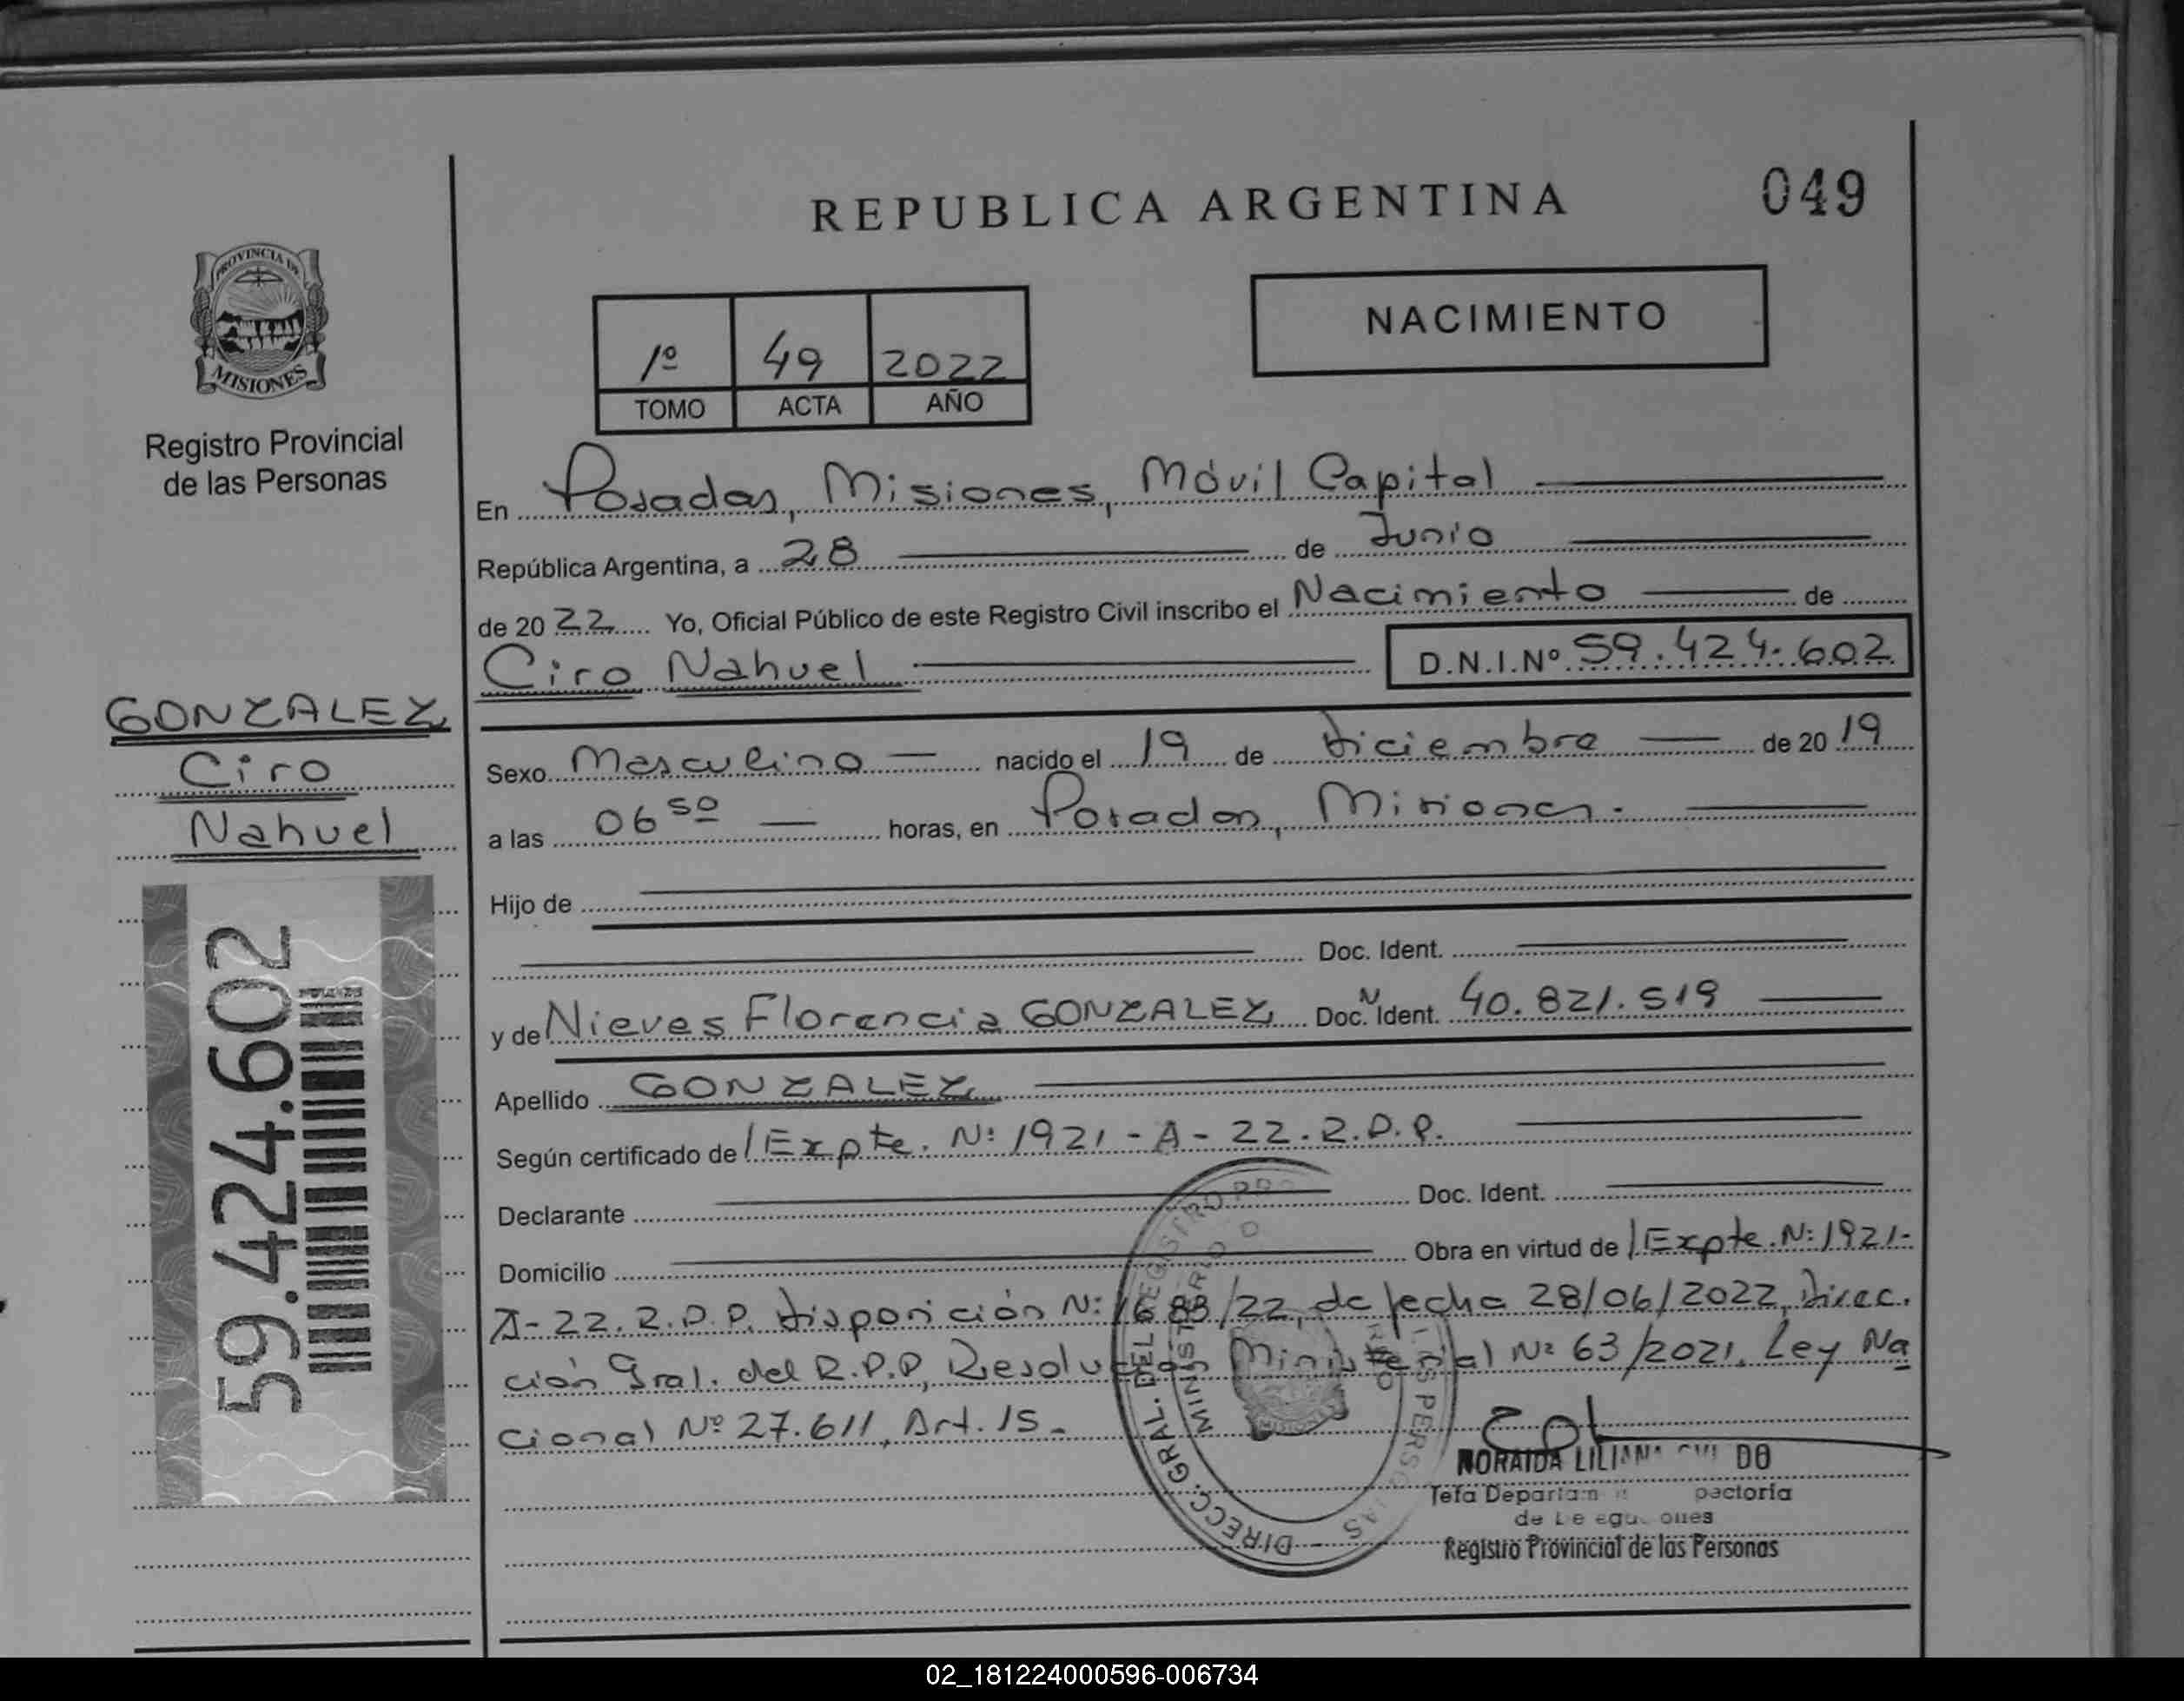 REPUBLICA ARGENTINA
049
PROVINCIA DE
MISIONES
Registro Provincial
de las Personas
1º 49 2022
TOMO ACTA AÑO
NACIMIENTO
En Posadas, Misiones, Móvil Capital
República Argentina, a 28 de Junio
de 2022 Yo, Oficial Público de este Registro Civil inscribo el Nacimiento de
Ciro Nahuel
D.N.I.Nº 59.424.602
GONZALEZ
Ciro
Nahuel
59.424.602
Sexo Masculino nacido el 19 de Diciembre de 2019
a las 06 50 horas, en Posadas, Misiones.
Hijo de
Doc. Ident.
y de Nieves Florencia GONZALEZ Doc. N Ident. 40.821.519
Apellido GONZALEZ
Según certificado de Expte. N: 1921-A-22.R.P.P.
Declarante Doc. Ident.
Domicilio Obra en virtud de Expte. N: 1921-
A-22.R.P.P. Disposición N: 1688/22, de fecha 28/06/2022, Direc.
ción Gral. del R.P.P, Resolución Ministerial Nº 63/2021, Ley Na
cional Nº 27.611, Art. 15.-
DIRECC. GRAL. DEL REGISTRO
NORAIDA LILIANA
Registro Provincial de las Personas
02_181224000596-006734